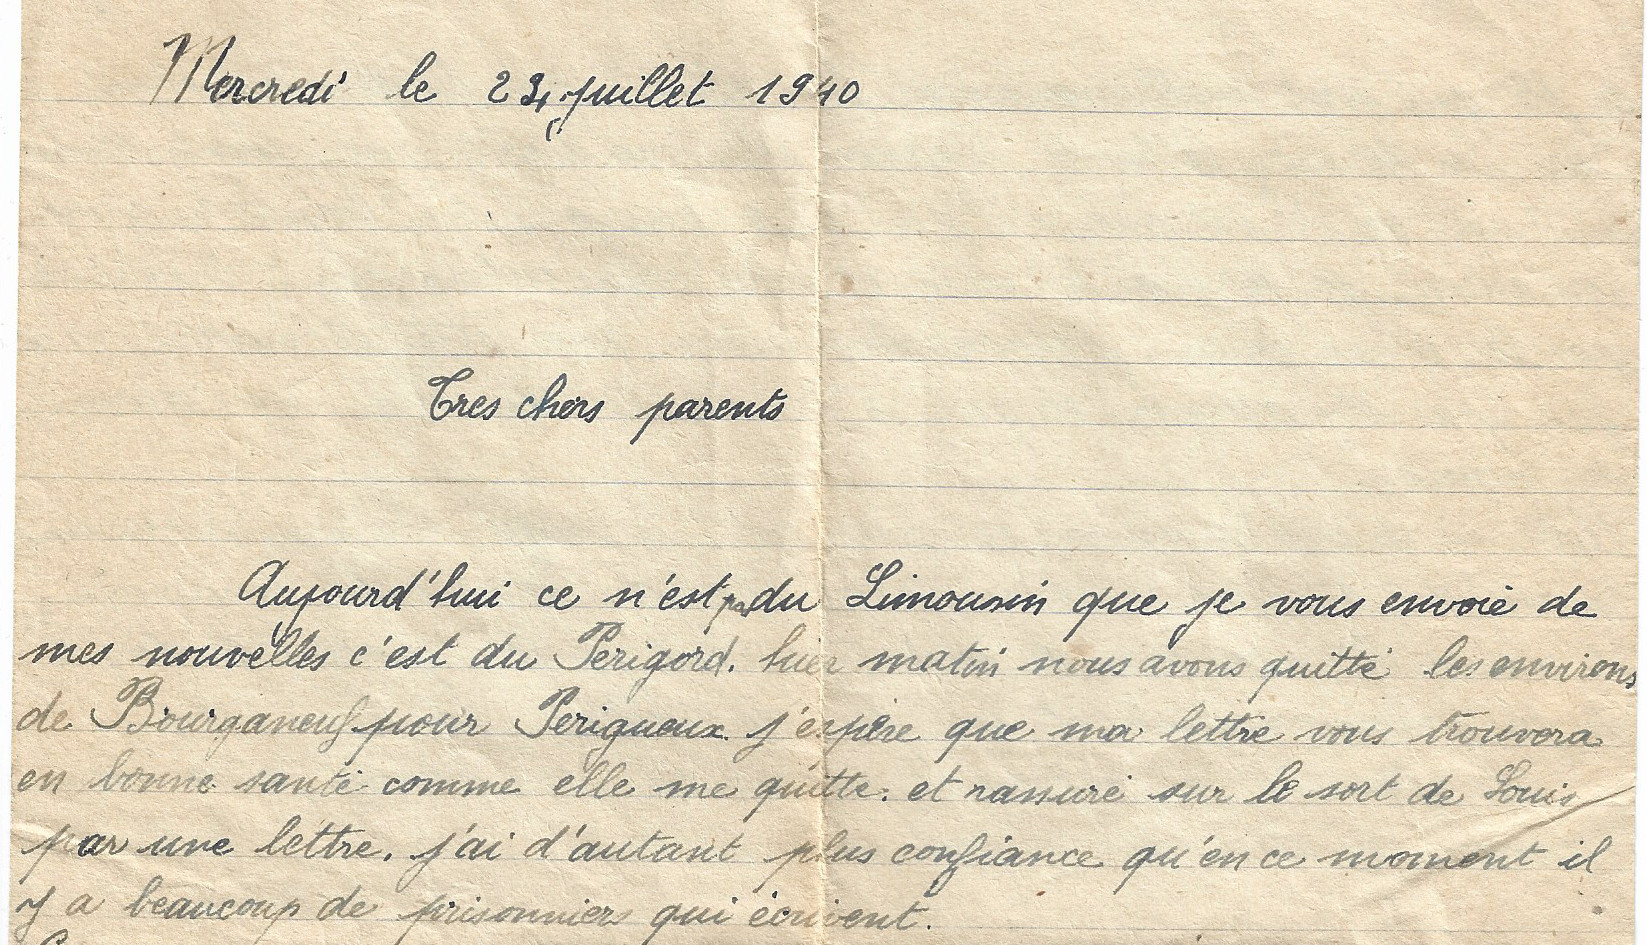 Mercredi le 24 juillet 1940
Tres chers parents
Aujourd'hui ce n'est pas du Limousin que je vous envoie de
mes nouvelles c'est du Périgord. hier matin nous avons quitté les environs
de Bourganeuf pour Perigueux. j'espère que ma lettre vous trouvera
en bonne santé comme elle me quitte. et rassuré sur le sort de Louis
par une lettre. j'ai d'autant plus confiance qu'en ce moment il
y a beaucoup de prisonniers qui écrivent.